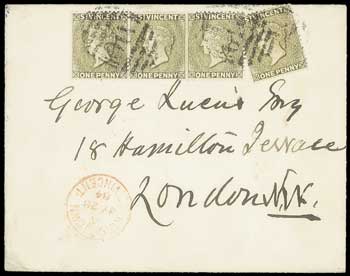 ST VINCENT ST VINCENT ST VINCENT ST VINCENT
ONE PENNY ONE PENNY ONE PENNY ONE PENNY
George Lucas Esq
18 Hamilton Terrace
London N.W.
VINCENT